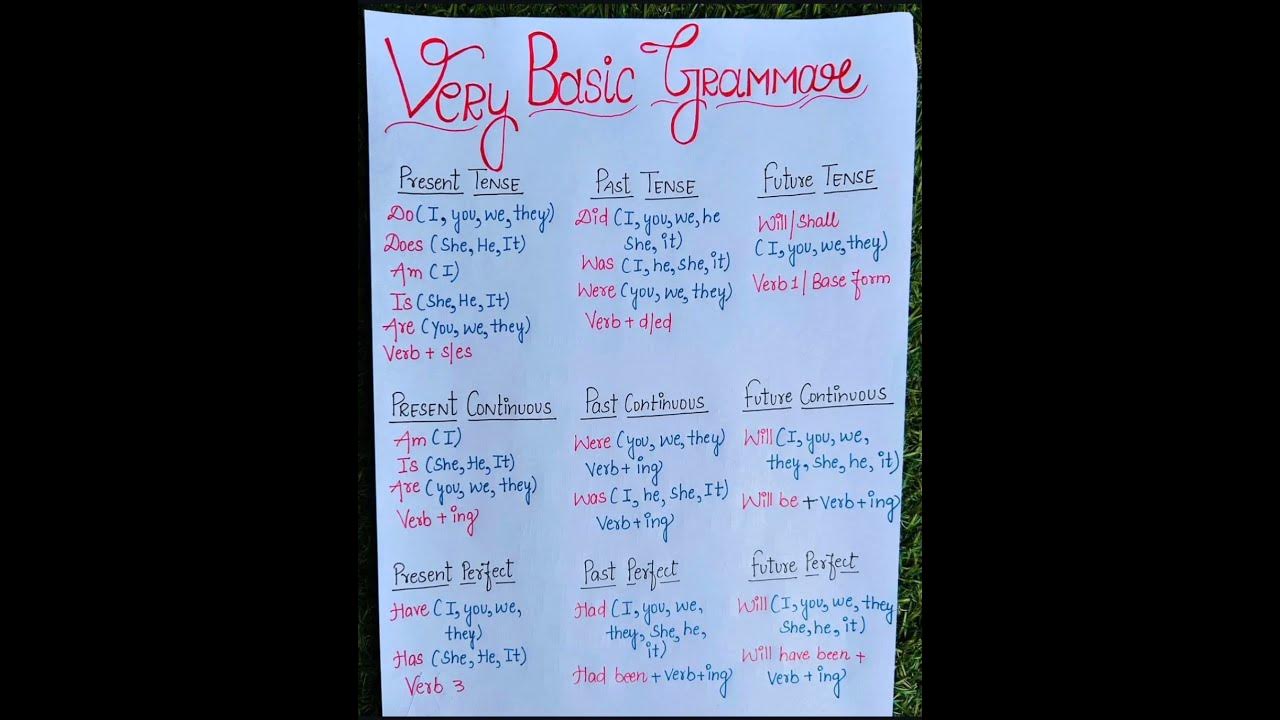 Very Basic Grammar
Present Tense
Do (I, you, we, they)
Does (She, He, It)
Am (I)
Is (She, He, It)
Are (You, we, they)
Verb + s/es
Past Tense
Did (I, you, we, he
She, it)
Was (I, he, she, it)
Were (you, we, they)
Verb + d/ed
Future Tense
Will/Shall
(I, you, we, they)
Verb 1 / Base form
Present Continuous
Am (I)
Is (She, He, It)
Are (you, we, they)
Verb + ing
Past Continuous
Were (you, we, they)
Verb + ing
Was (I, he, she, It)
Verb + ing
Future Continuous
Will (I, you, we,
they, she, he, it)
Will be + Verb + ing
Present Perfect
Have (I, you, we,
they)
Has (She, He, It)
Verb 3
Past Perfect
Had (I, you, we,
they, She, he,
it)
Had been + Verb + ing
Future Perfect
Will (I, you, we, they
She, he, it)
Will have been +
Verb + ing